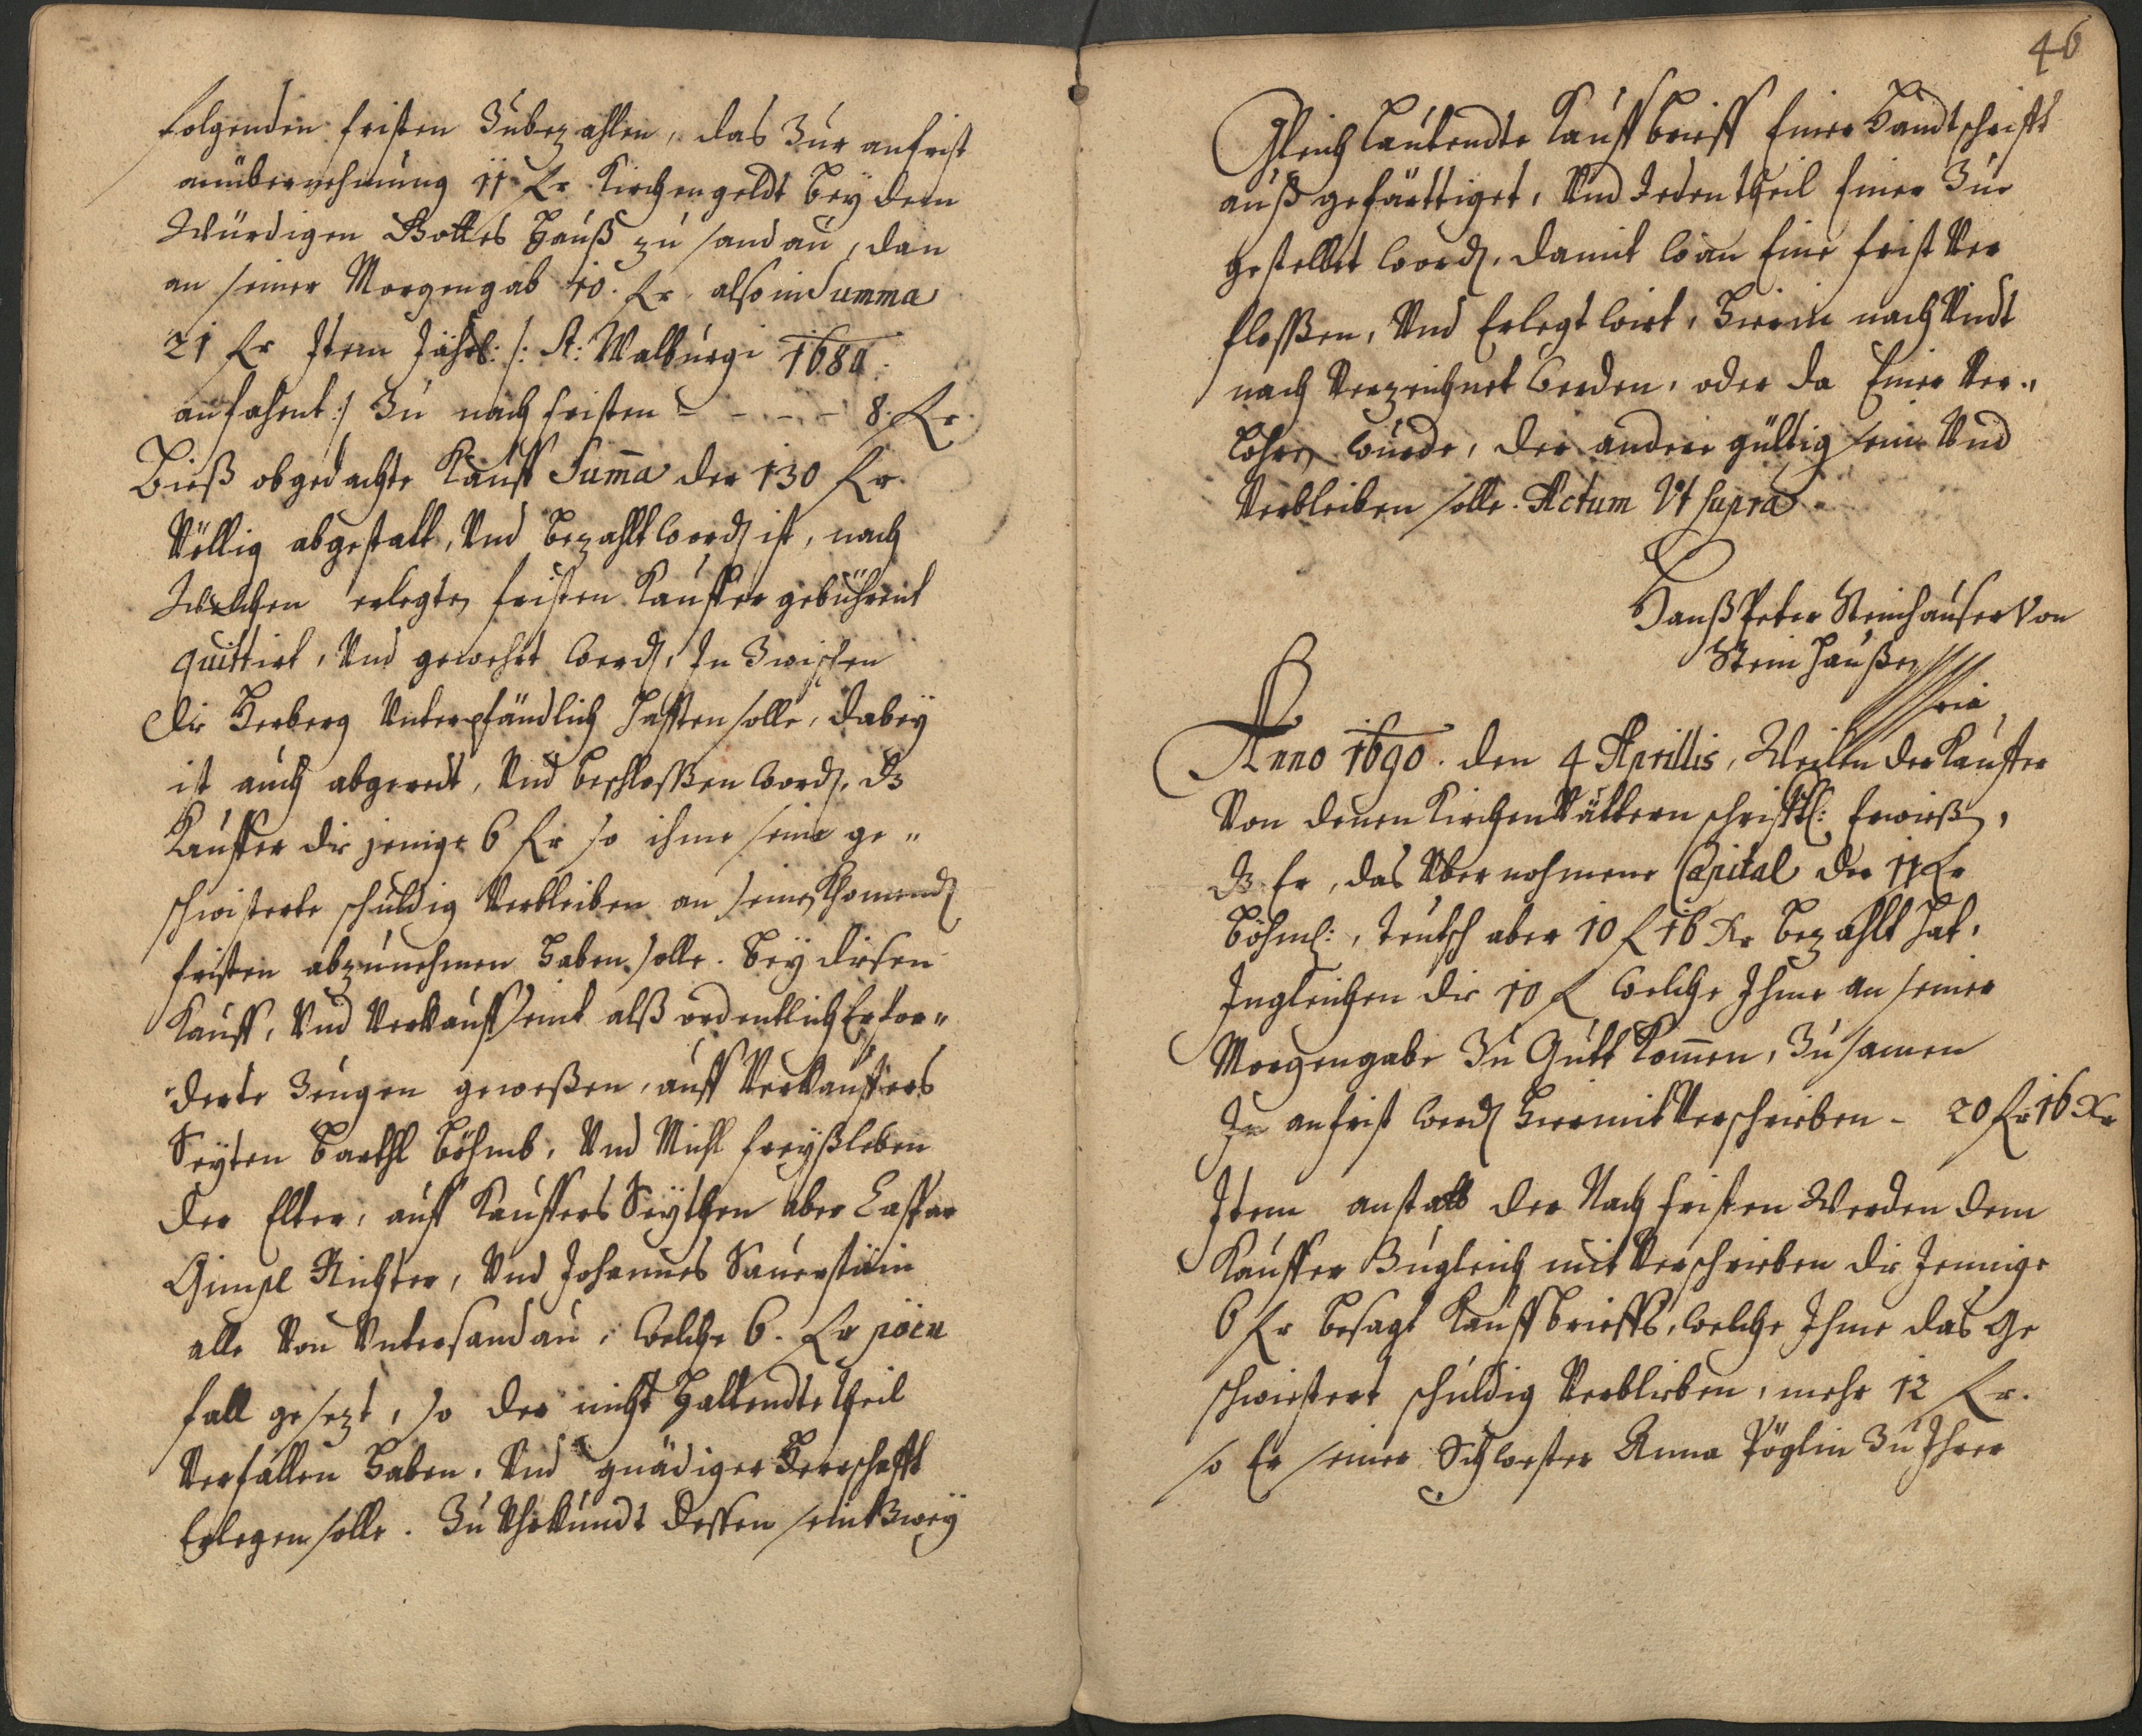 folgenden fristen Zubezahlen, das Zur anfrist
anübernehmung 11 fl Kirchengeldt bey dem
Würdigen Gottes Hauß zu sandau, dan
an seiner Morgengab 10. fl also in Summa
21 fl Item Jährl: /: St: Walburgi 1684
anfahent :/ Zu nachfristen - - - - 8. fl
Bieß obgedachte Kauff Suma der 130 fl.
Völlig abgestatt, Und bezahlt word ist, nach
Welchen erlegten fristen Kauffer gebührent
quittirt, Und gewehrt werd, In Zwischen
die Herberg Unterpfändlich hafften solle, dabey
ist auch abgeredt, Und beschlossen word, dz
Kauffer die jenige 6 fl so ihme seine ge"
schwisterte schuldig Verbleiben an seinen Khomend
fristen abzunehmen haben solle. Bey diesen
Kauff, Und Verkauff seint alß ordentlich Erfor"
derte Zeugen geweßen, auff Verkauffers
Seyten Barthl Böhmb, Und Michl freyßleben
der Elter, auff Kauffers Seythen aber Caspar
Gimpl Richter, Und Johannes Sauerstein
alle Von Untersandau, welche 6. fl pöen
fall gesezt, so der nicht Haltendte theil
Verfallen haben, Und gnädiger Herrschafft
Erlegen solle. Zu Uhrkundt dessen seint Zwey
46
Gleich lautendte Kauffbrieff Einer Handtschrifft
auß gefärttiget, Und Jedentheil Einer Zur
gestellet word, damit wan Eine frist Ver
flossen, Und Erlegt wirt, hierin nach Undt
nach Verzeichnet werden, oder da Einer Ver"
lohren wurde, der andere gültig sein Und
Verbleiben solle. Actum Ut supra.
Hanß Peter Steinhauser Von
Steinhaußen
Anno 1690. den 4 Aprillis, Weillen der Kauffer
Von denen Kirchen Vättern schrifftl: Erwießen,
dz Er, das Übernohmene Capital der 11 fl
Böhmb:, teutsch aber 10 fl 16 Xr bezahlt hat,
Ingleichen die 10 fl welche Ihme an seiner
Morgengabe Zu Gutt Komen, Zusamen
In anfrist werd hiermit Verschrieben - 20 fl 16 Xr
Item anstatt der Nachfristen Werden dem
Kauffer Zugleich mit Verschrieben die Jennige
6 fl besagt Kauffbrieffs, welche Ihme das Ge
schwistert schuldig Verblieben, mehr 12 fl.
so Er seiner Schwester Anna Pöglin Zu Ihrer